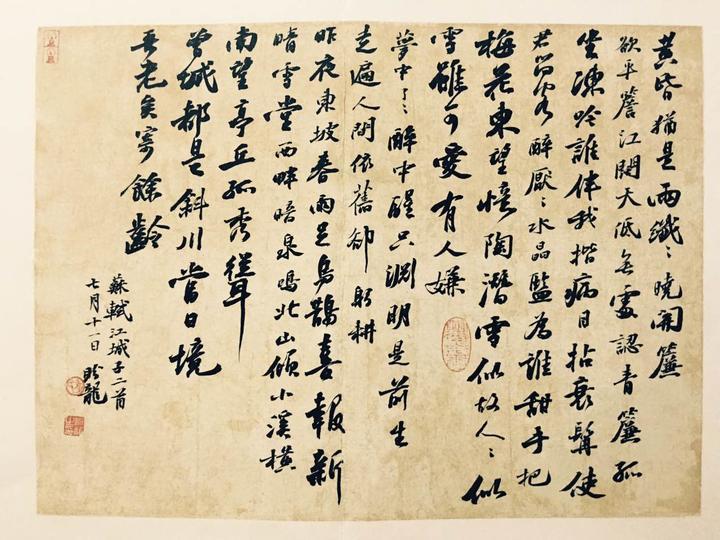 黄昏猶是雨纖〻曉開簾
欲平簷江闊天低無處認青簾孤
坐凍吟誰伴我揩病目拈衰髯使
君留客醉厭〻水晶監為誰甜手把
梅花東望憶陶潛雪似故人〻似
雪雖可愛有人嫌
夢中了〻醉中醒只淵明是前生
走遍人間依舊卻躬耕
昨夜東坡春雨足烏鵲喜報新
晴雪堂西畔暗泉鳴北山傾小溪橫
南望亭丘孤秀聳
曾城都是斜川當日境
吾老矣寄餘齡
蘇軾江城子二首
七月十一日 龍